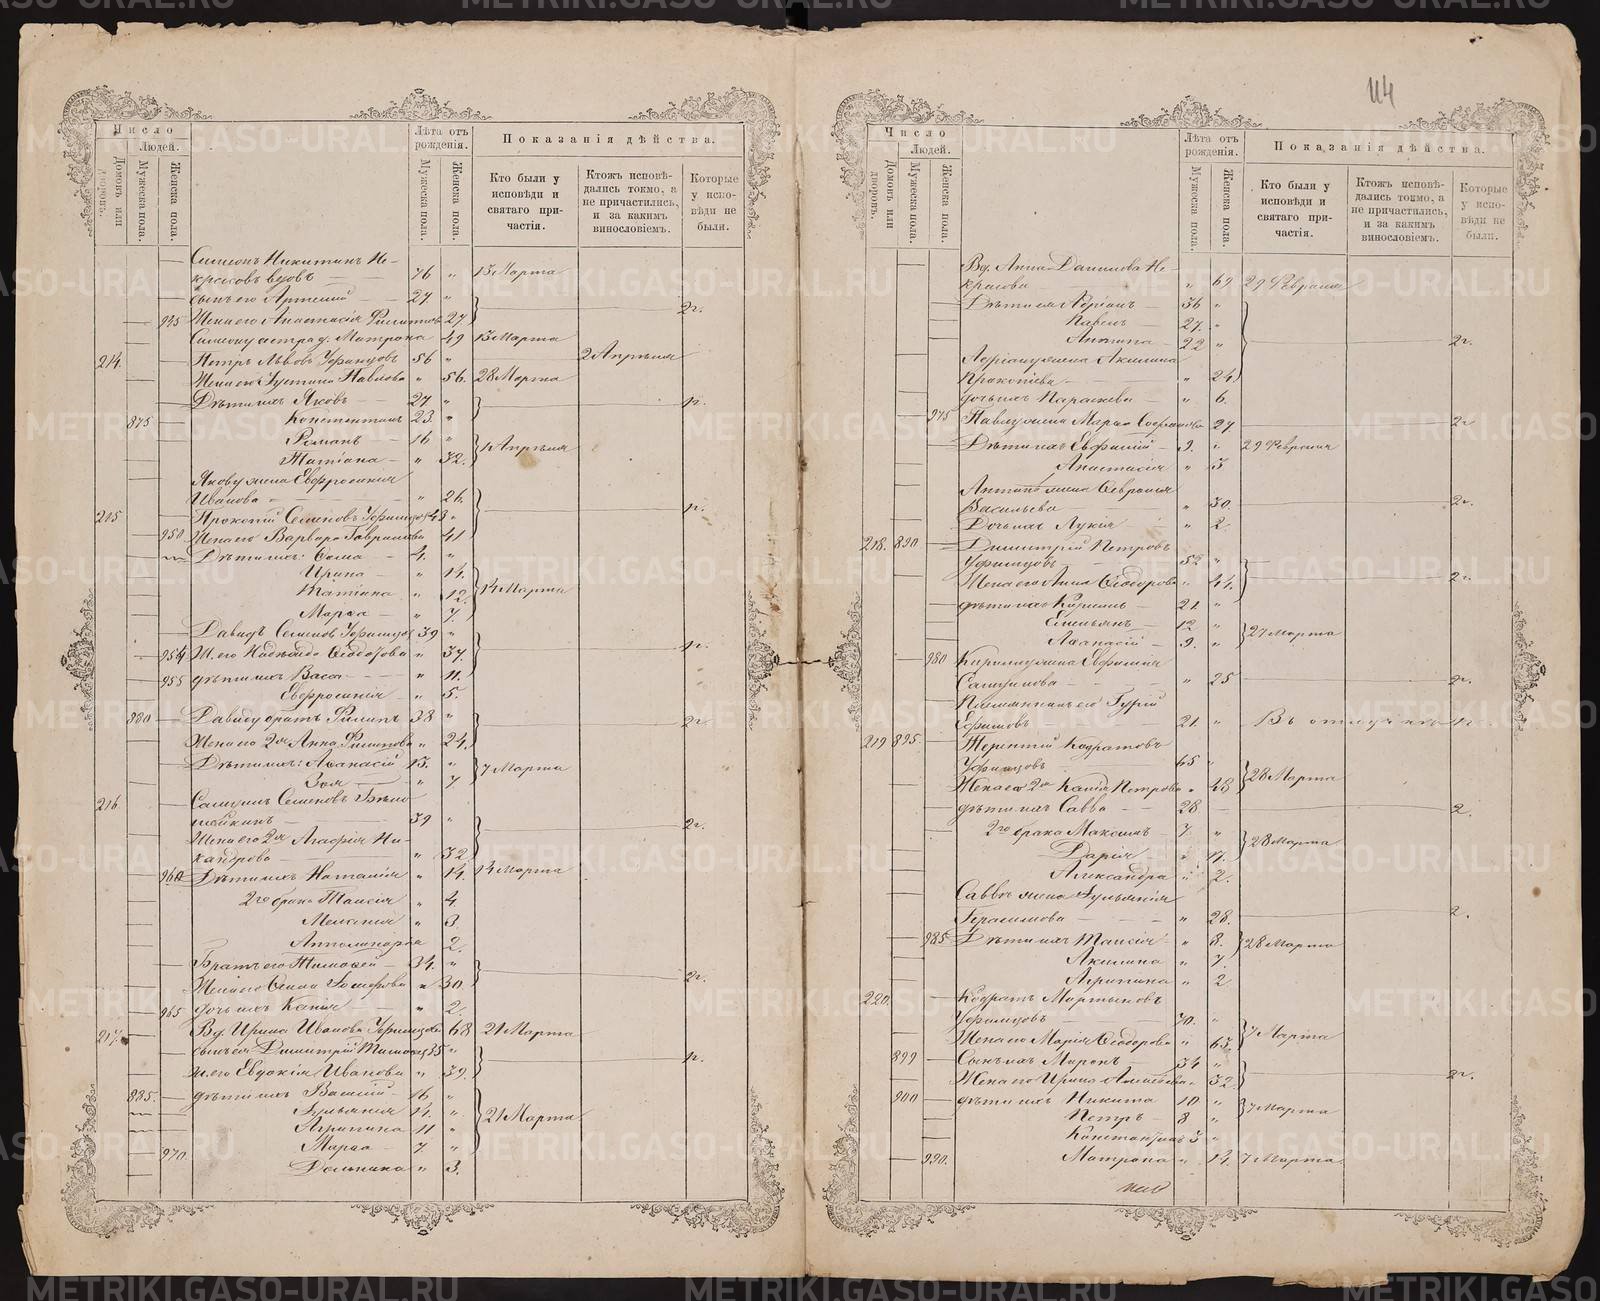 114
Число
Людей.
Домовъ или дворовъ.
Мужеска пола.
Женска пола.
Лѣта отъ рожденія.
Мужеска пола.
Женска пола.
Показанія дѣйства.
Кто были у исповѣди и святаго при-
частія.
Ктожъ исповѣ-
дались токмо, а
не причастились,
и за какимъ
винословіемъ.
Которые
у испо-
вѣди не
были.
Симеонъ Никитинъ Не-
красовъ вдовъ 76 " 13 Марта
сынъ его Артемій 27 "
945 Жена его Анастасія Филиппова 27 2 г.
Симеону сестра д. Матрона 49 13 Марта
214. Петръ Львовъ Уфимцовъ 56 " 2 Апрѣля
Жена его Іустина Павлова " 56. 28 Марта
Дѣти ихъ Яковъ 27 "
875 Константинъ 23. "
Романъ 16 "
Татіана " 32. 4 Апрѣля
Якову жена Евфросинія
Иванова " 26.
215 Прокопій Семеновъ Уфимцовъ 43 "
950 Жена его Варвара Гаврилова 41
Дѣти ихъ: Ѳома 4. "
Ирина " 14.
Татіана " 12. 14 Марта
Марѳа " 7.
Давидъ Семеновъ Уфимцовъ 39 "
954 Ж. его Надежда Ѳедотова " 37.
955 дѣти ихъ Васса " 11.
Евфросинія " 5.
880 Давиду братъ Филипъ 38 " 2 г.
Жена его 2я Анна Филипова " 24.
Дѣти ихъ: Аѳанасій 13. "
Зоя " 7. 7 Марта
216 Самуилъ Семеновъ
39 "
Жена его 2я Агафія Ни-
кандрова " 32. 2 г.
960 Дѣти ихъ Наталія " 14. 14 Марта
2го брака Таисія " 4
Меланія " 3.
Апполинарія 2.
Братъ его Тимоѳей 34. "
" 30. 2 г.
965 дочь ихъ Капія " 2.
217. Вд. Ирина Иванова Уфимцова 68 21 Марта
сынъ ея Димитрій 35 "
ж. его Евдокія Иванова " 39.
885. дѣти ихъ Василій 16 "
Іуліанія 14. "
Агрипина 11 " 21 Марта
970 Марѳа 7. "
Домника " 3.
Число
Людей.
Домовъ или дворовъ.
Мужеска пола.
Женска пола.
Лѣта отъ рожденія.
Мужеска пола.
Женска пола.
Показанія дѣйства.
Кто были у
исповѣди и
святаго при-
частія.
Ктожъ исповѣ-
дались токмо, а
не причастились,
и за какимъ
винословіемъ.
Которые
у испо-
вѣди не
были.
Вд. Анна Данилова Не-
красова " 69. 29 Февраля
Дѣти ея 36 "
Павелъ 27. "
Антипа 22 " 2 г.
жена Акилина
Прокопіева " 24.
дочь ихъ Параскева " 6.
975 Павлу жена Марѳа 27 2 г.
Дѣти ихъ Евфимій 9. " 29 Февраля
Анастасія " 3
Антипѣ жена Февронія
Васильева " 30. 2 г.
Дочь ихъ Лукія " 2.
218. 890 Димитрій Петровъ
Уфимцовъ 52 "
Жена его Анна Ѳеодорова " 44. 2 г.
дѣти ихъ Кирилъ 21. "
Емельянъ 12 " 27 Марта
Аѳанасій 9. "
980 Кириллу жена Евфимія
Самуилова " 25 2 г.
Гурій
Ефимовъ 21. " Въ отлучкѣ
219 895. Терентій Кодратовъ
Уфимцовъ 65 "
Жена его 2я Капія Петрова " 48 28 Марта
дѣти ихъ Савва 28 2.
2го брака Максимъ 7. "
Дарія " 11. 28 Марта
Александра " 2.
Саввѣ жена Іуліанія
Герасимова " 28. 2.
985 Дѣти ихъ Таисія " 8. 28 Марта
Акилина " 7.
Агрипина " 2
220. Кодратъ Мартыновъ
Уфимцовъ 70. "
Жена его Марія Ѳеодорова " 63. 7 Марта
899 Сынъ ихъ Миронъ 34 "
Жена его Ирина " 32. 2 г.
900 дѣти ихъ Никита 10. "
Петръ 8 " 7 Марта
Константинъ 3 "
990. Матрона " 14. 7 Марта
METRIKI.GASO-URAL.RU